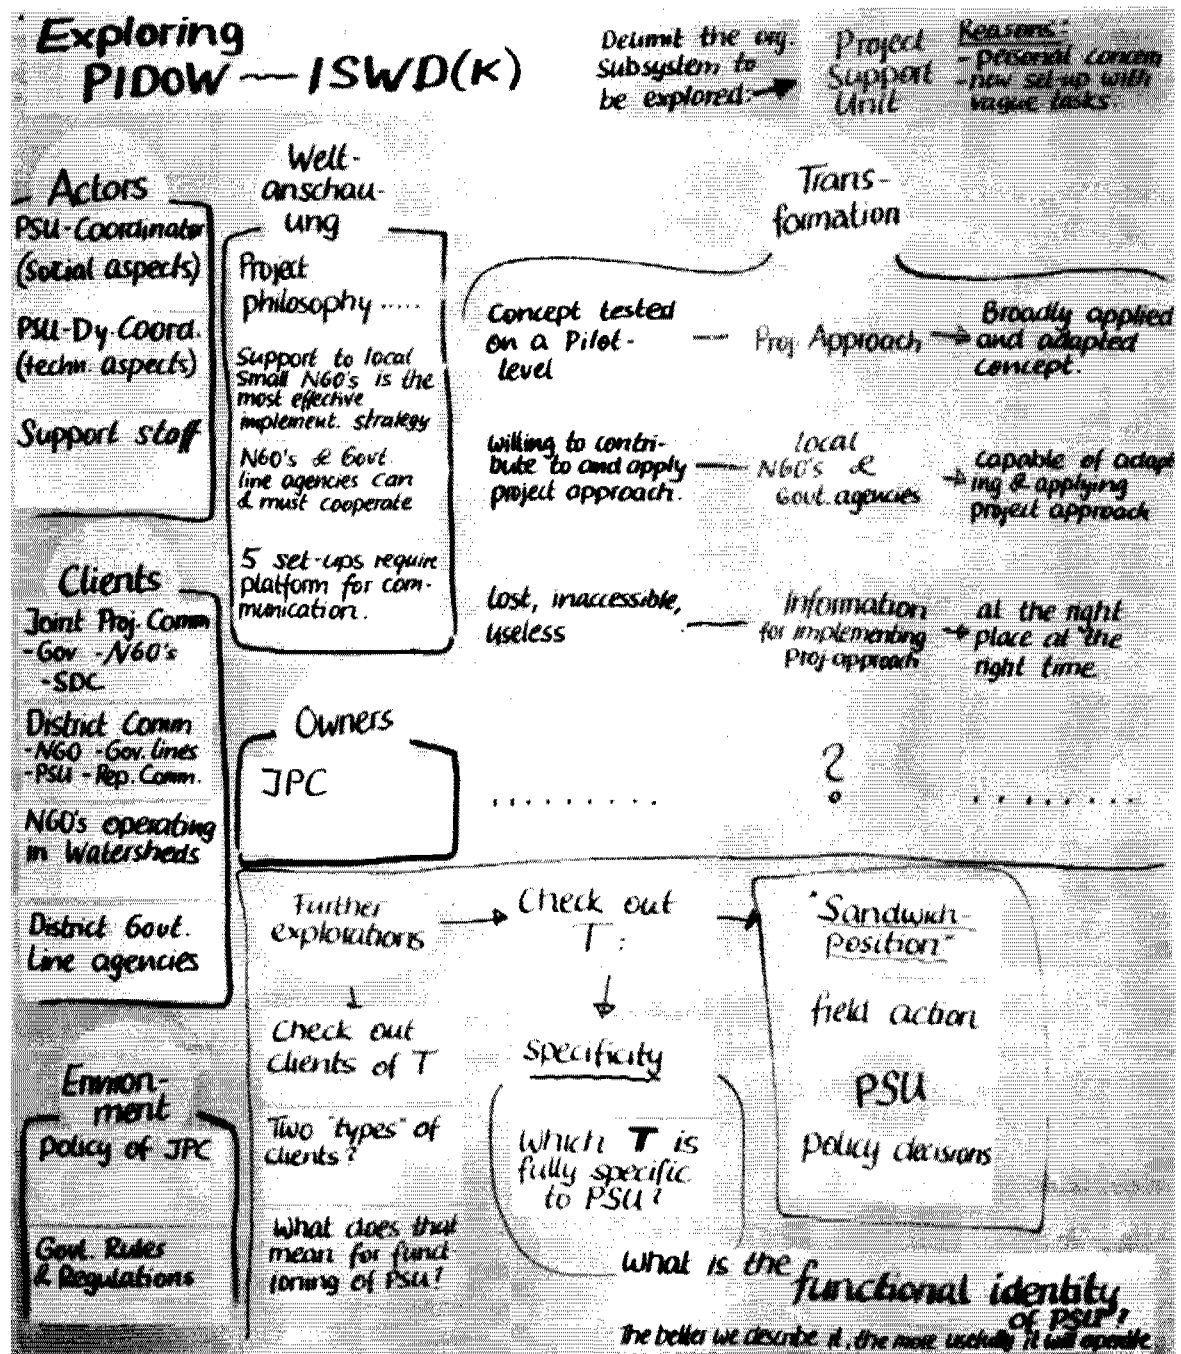 Exploring
PIDOW — ISWD(K)
Delimit the org.
Subsystem to
be explored:
Project
Support
Unit
Reasons:
- personal concern
- new set-up with
vague tasks.
Actors
PSU-Coordinator
(social aspects)
PSU-Dy.Coord.
(techn. aspects)
Support staff
Clients
Joint Proj. Comm
-Gov -NGO's
-SDC
District Comm
-NGO -Gov. lines
-PSU -Rep. Comm.
NGO's operating
in Watersheds
District Govt.
Line agencies
Environ-
ment
Policy of JPC
Govt. Rules
& Regulations
Welt-
anschau-
ung
Project
philosophy .....
Support to local
Small NGO's is the
most effective
implement. strategy
NGO's & Govt.
line agencies can
& must cooperate
5 set-ups require
platform for com-
munication.
Owners
JPC
Trans-
formation
Concept tested
on a Pilot-
level
Proj. Approach
Broadly applied
and adapted
concept.
willing to contri-
bute to and apply
project approach.
local
NGO's &
Govt. agencies
capable of adapt
ing & applying
project approach
Lost, inaccessible,
useless
Information
for implementing
Proj-approach
at the right
place at the
right time
. . . . . . . . .
?
. . . . . . . .
Further
explorations
Check out
clients of T
Two "types" of
clients?
What does that
mean for funct
ioning of PSU?
Check out
T:
Specificity
Which T is
fully specific
to PSU?
"Sandwich-
position"
field action
PSU
policy decisions
What is the functional identity
of PSU"?
The better we describe it, the more usefully it will operate